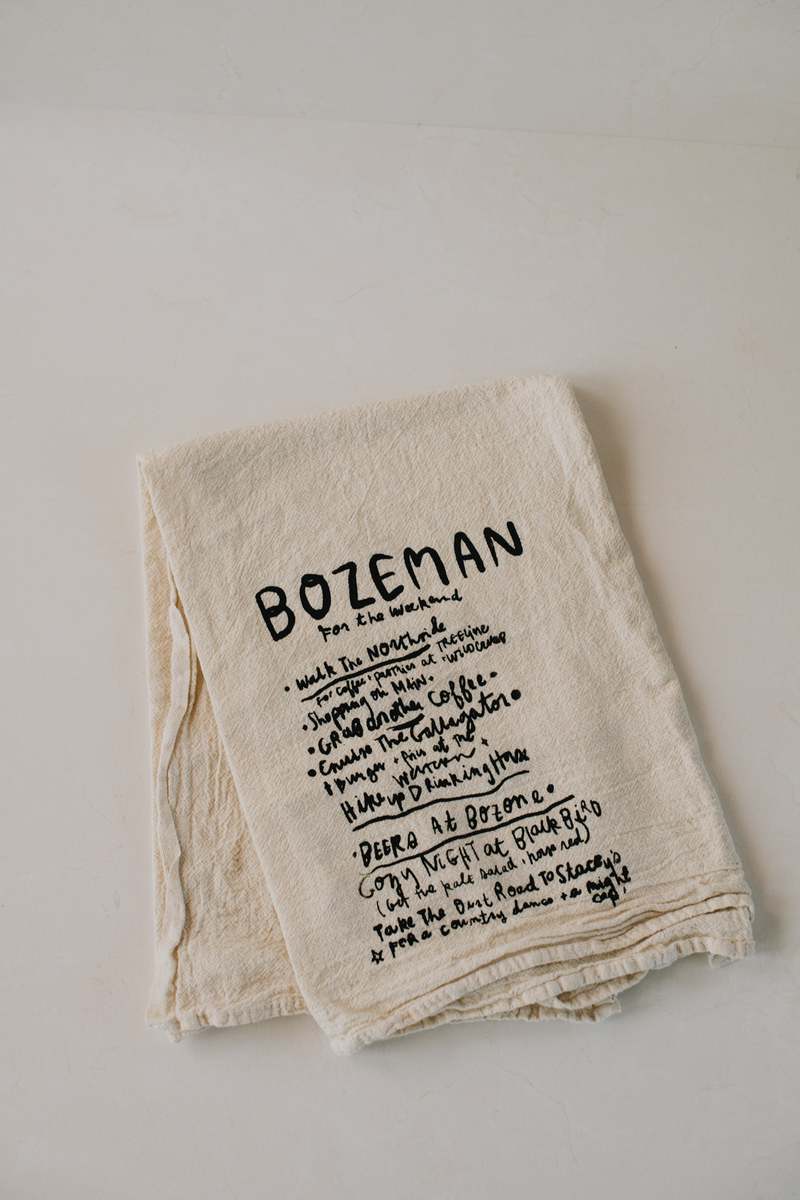 BOZEMAN
For the weekend
• Walk The Northside
For coffee + pastries at TREELINE
+ WILDCRUMB
• Shopping on MAIN •
• GRAB another Coffee •
• Cruise The Gallagator •
+ Burger + fries at The
Western +
Hike up Drinking Horse
• BEERS At BOZONE •
Cozy NIGHT at BlackBIRD
(Get the kale salad + house red)
Take The Dirt Road To Stacey's
☆ FOR a country dance + a night
cap!